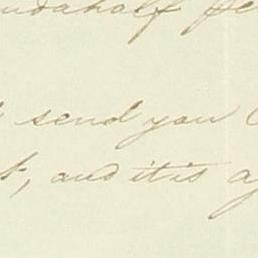 and a half
send you
, and it is a